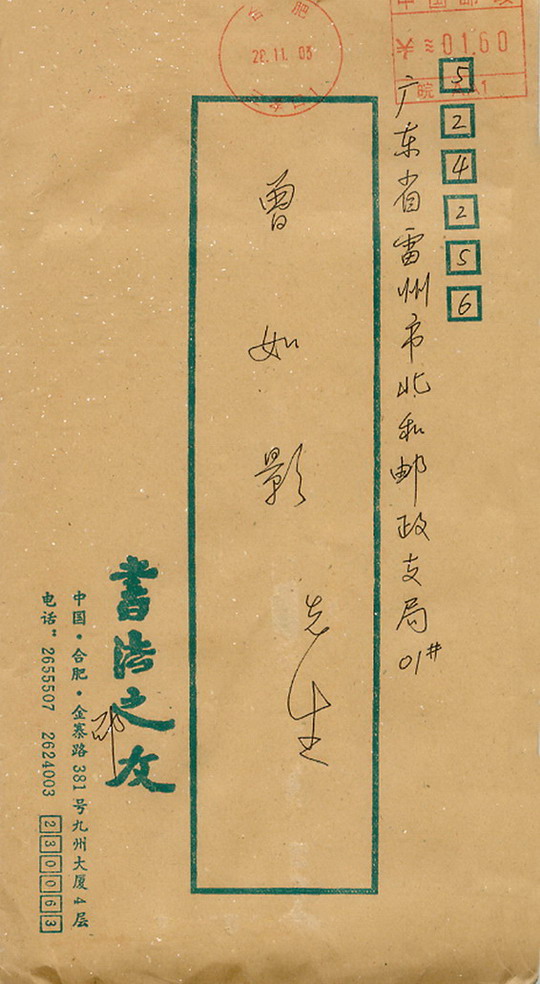 合肥
20.11.03
中国邮政
01.60
皖
524256
广东省雷州市北和邮政支局01#
曾如影先生
書法之友
邵
中国·合肥·金寨路381号九州大厦4层
电话：2655507 2624003 230063